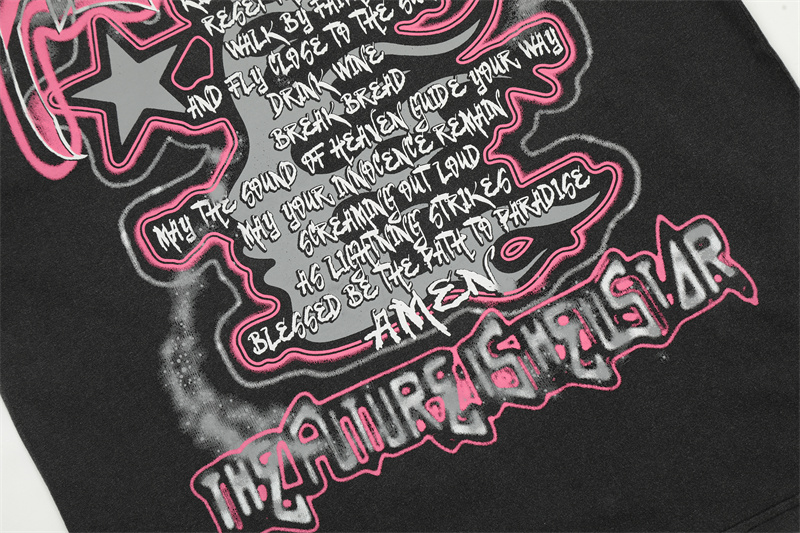 WALK BY FAITH
AND FLY CLOSE TO THE
DRINK WINE
BREAK BREAD
MAY THE SOUND OF HEAVEN GUIDE YOUR WAY
MAY YOUR INNOCENCE REMAIN
SCREAMING OUT LOUD
AS LIGHTNING STRIKES
BLESSED BE THE PATH TO PARADISE
AMEN
THE FUTURE IS HELLSTAR